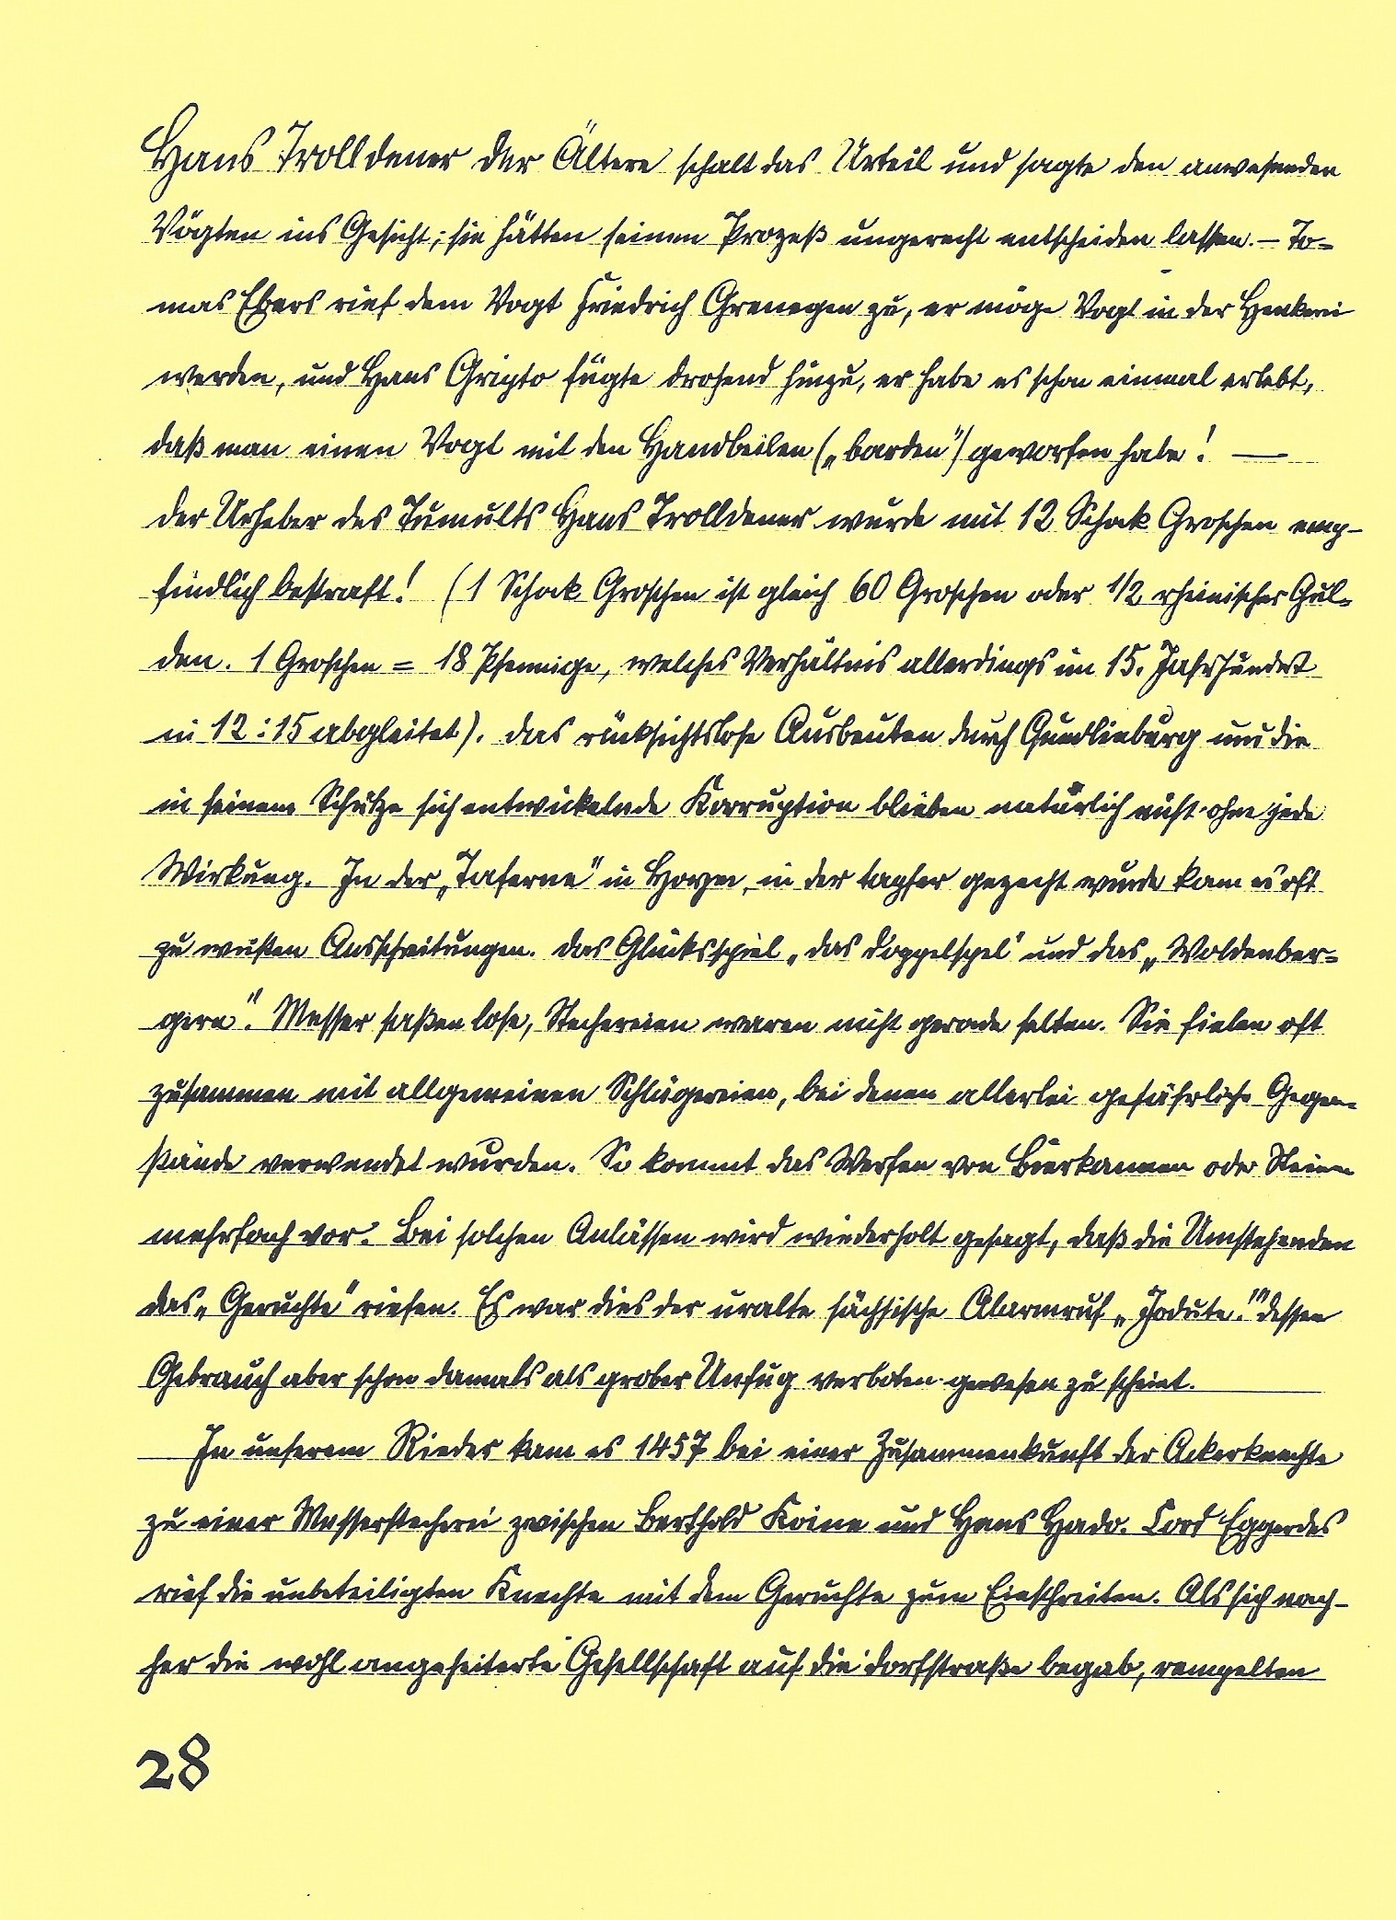 Hans Trolldener der Ältere schalt das Urteil und sagte den anwesenden
Vögten ins Gesicht; sie hätten seinen Prozeß ungerecht entscheiden lassen. – To-
mas Ebers rief dem Vogt Friedrich Grenegen zu, er möge Vogt in der Henkerei
werden, und Hans Gripto fügte drohend hinzu, er habe es schon einmal erlebt,
daß man einen Vogt mit den Handbeilen („barden") geworfen habe! —
Der Urheber des Tumults Hans Trolldener wurde mit 12 Schock Groschen emp-
findlich bestraft! (1 Schock Groschen ist gleich 60 Groschen oder 1/2 rheinischer Gul-
den. 1 Groschen = 18 Pfennige, welches Verhältnis allerdings im 15. Jahrhundert
in 12:15 abgleitet). Das rücksichtslose Ausbeuten durch Quedlinburg und die
in seinem Schutze sich entwickelnde Korruption blieben natürlich nicht ohne jede
Wirkung. In der „Taferne" in Hoym, in der tapfer gezecht wurde kam es oft
zu wüsten Ausschreitungen. Das Glücksspiel „das Doppelspel" und das „Woldenber-
gern". Messer saßen lose, Stechereien waren nicht gerade selten. Sie fielen oft
zusammen mit allgemeinen Schlägereien, bei denen allerlei gefährliche Gegen-
stände verwendet wurden. So kommt das Werfen von Bierkannen oder Steinen
mehrfach vor. Bei solchen Anlässen wird wiederholt gesagt, daß die Umstehenden
das „Geruchte" riefen. Es war dies der uralte sächsische Alarmruf „Jodute!" dessen
Gebrauch aber schon damals als grober Unfug verboten gewesen zu scheint.
In unserem Rieder kam es 1457 bei einer Zusammenkunft der Ackerknechte
zu einer Messerstecherei zwischen Berthold Koine und Hans Hado. Cord Eggerdes
rief die unbeteiligten Knechte mit dem Geruchte zum Einschreiten. Als sich nach-
her die wohl angeheiterte Gesellschaft auf die Dorfstraße begab, rempelten
28